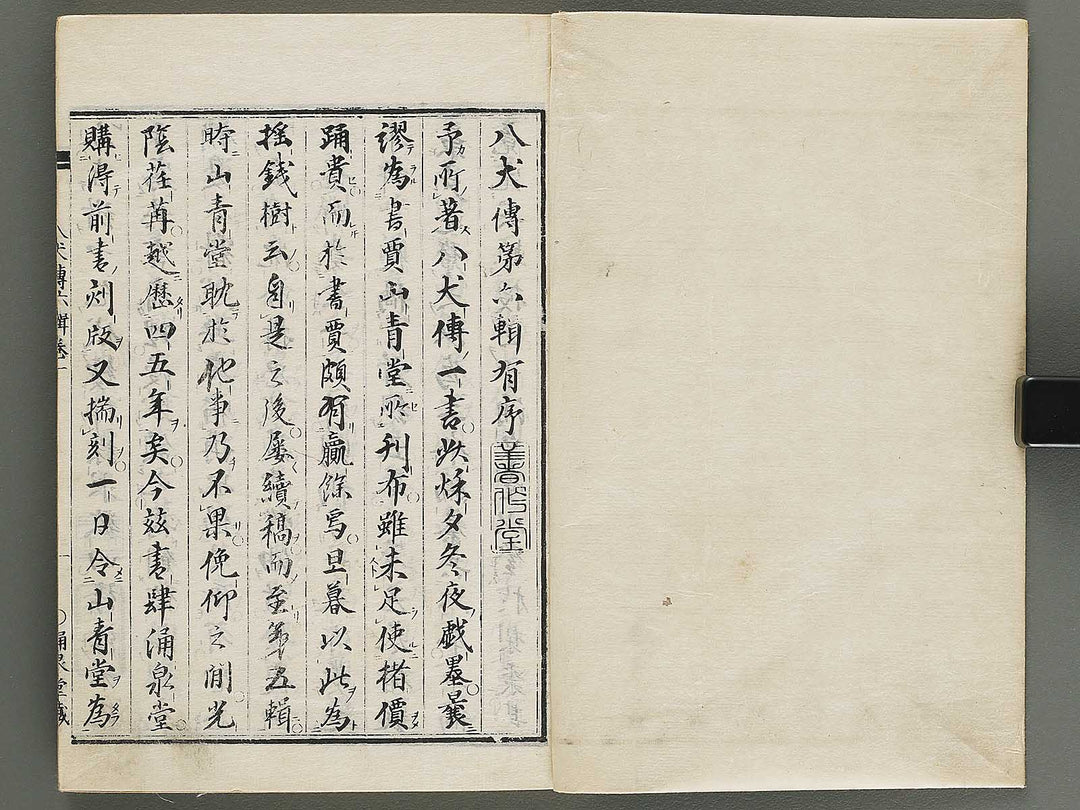 八犬傳第六輯有序
予所著八犬傳一書此秌夕冬夜戯墨曩
謬為書賈山青堂所刊布雖未足使楮價
踊貴而於書賈頗有贏餘焉旦暮以此為
揺錢樹云自是之後屡續稿而至第五輯
時山青堂耽於他事乃不果俛仰之間光
陰荏苒越歷四五年矣今玆書肆涌泉堂
購得前書刻版又揣刻一日令山青堂為
八犬傳六輯卷一
涌泉堂藏